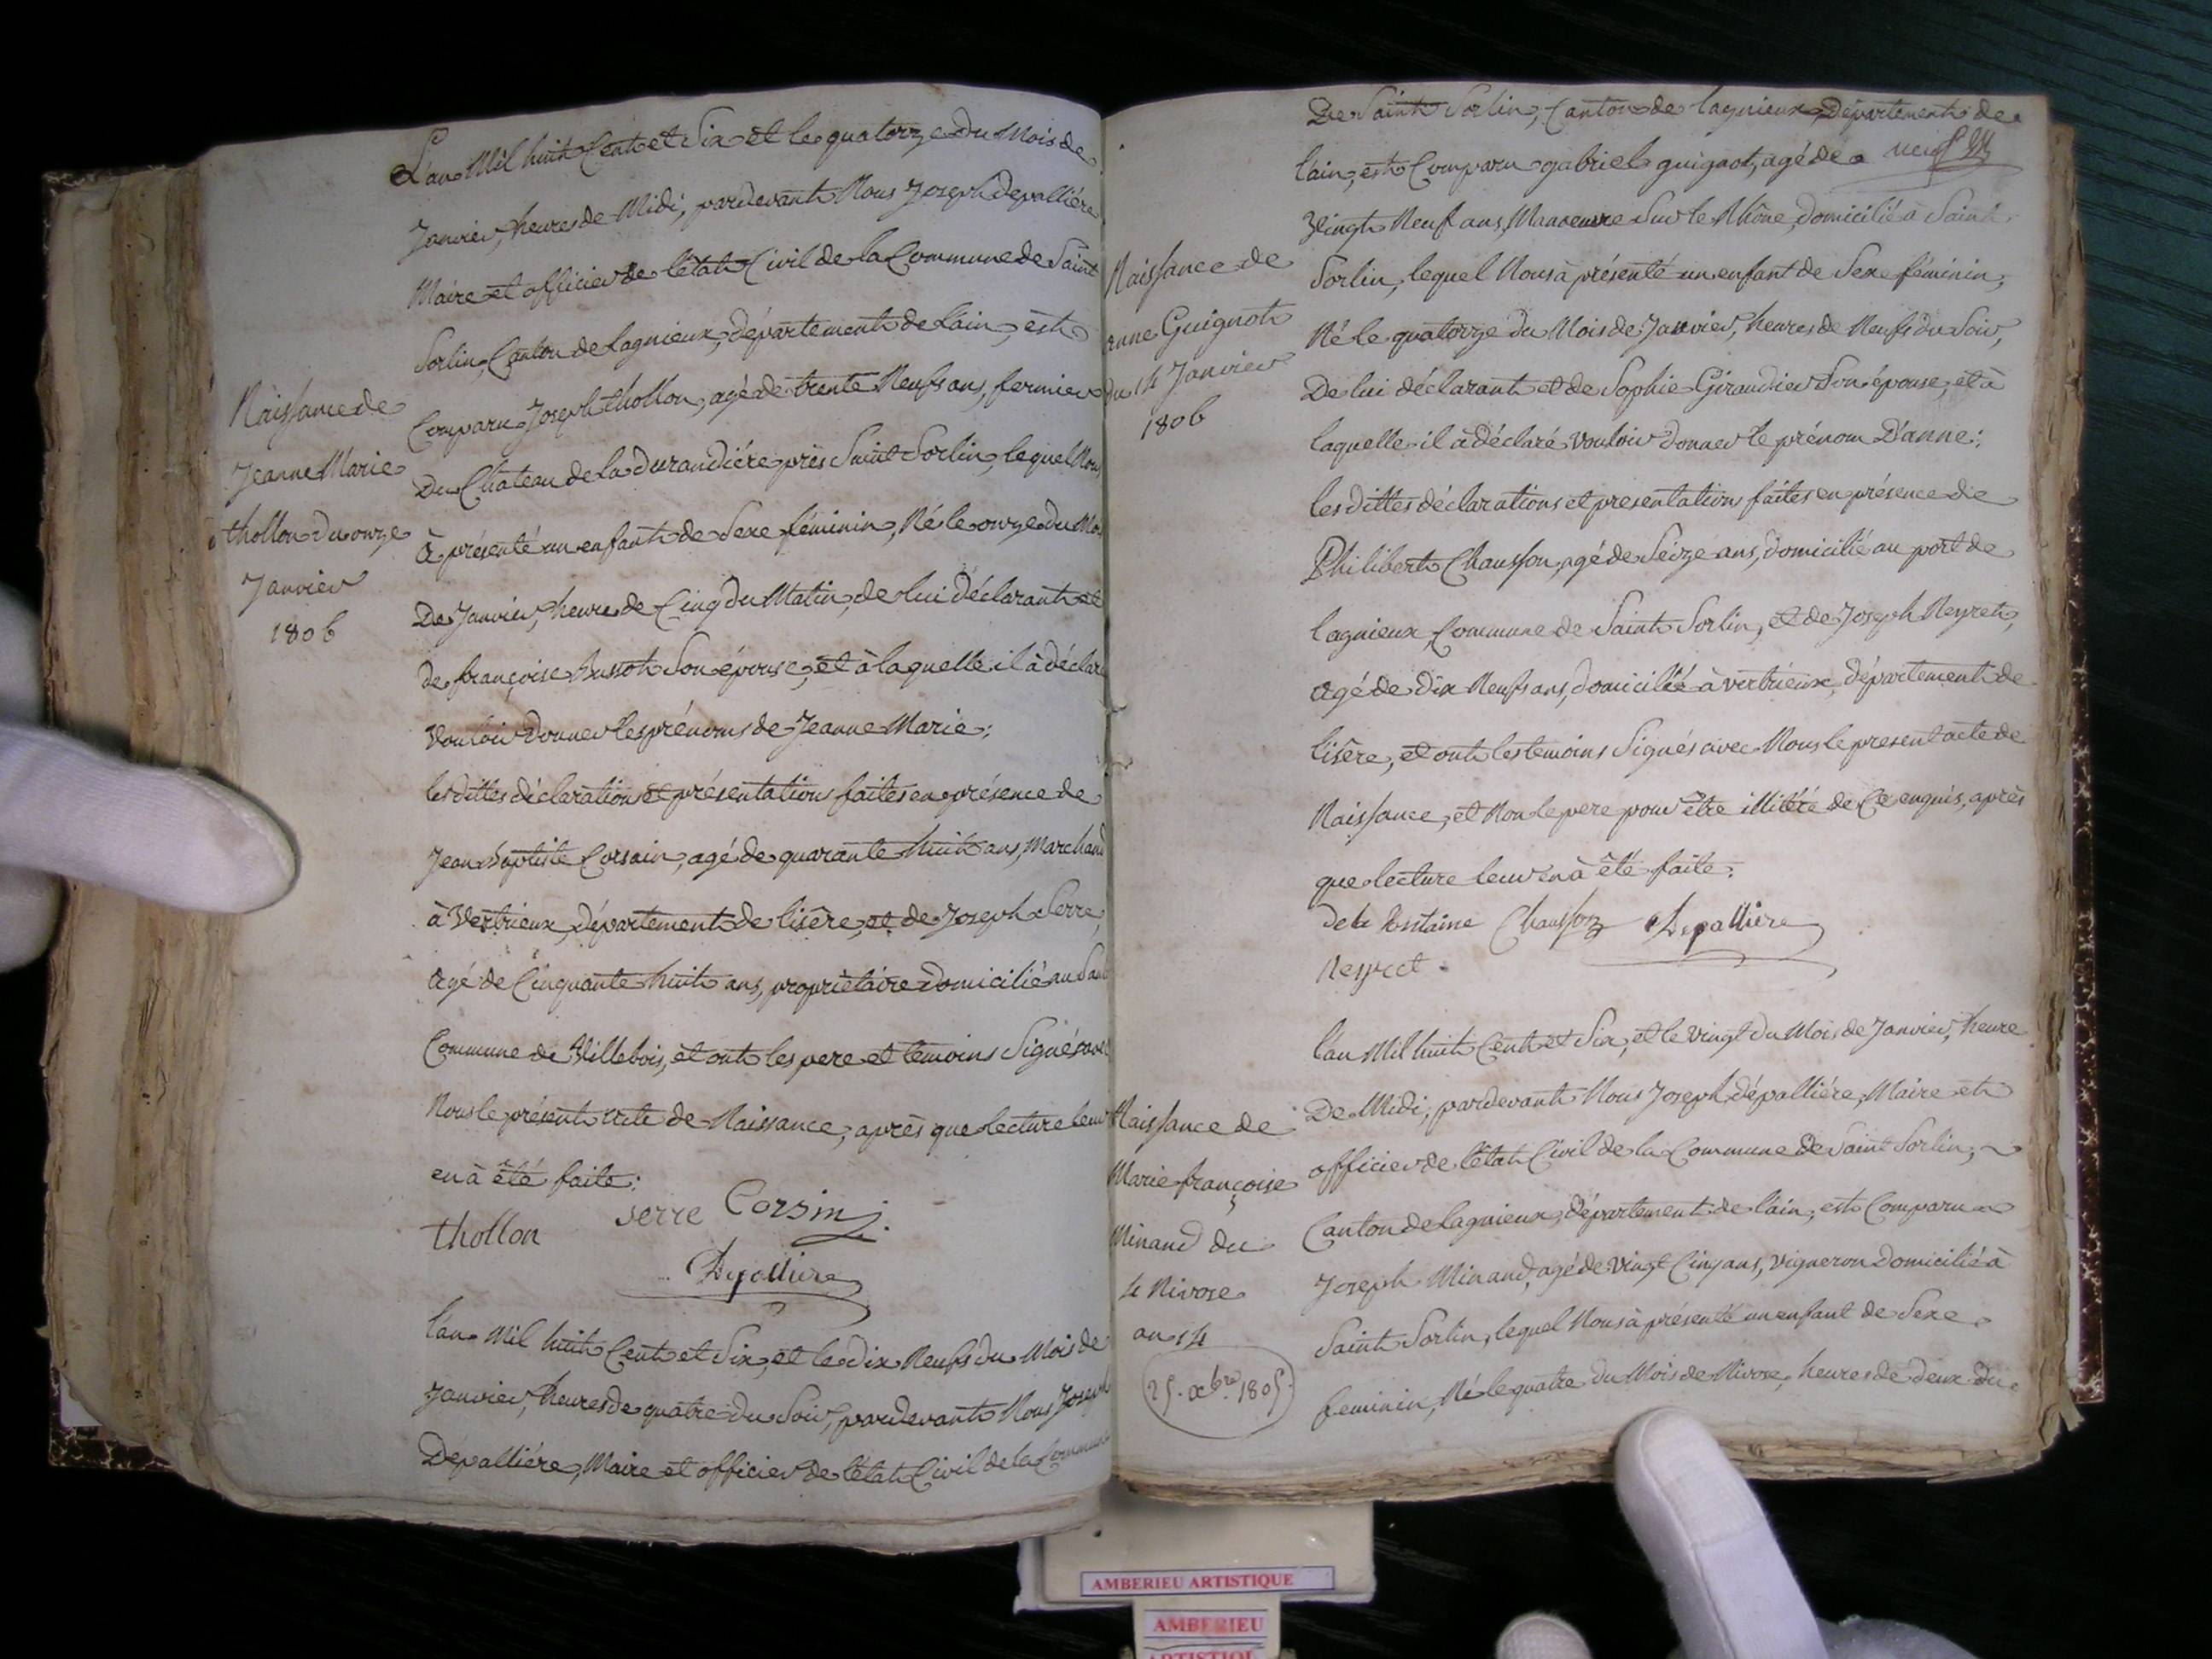 L'an Mil huit Cent et Six et le quatorze du Mois de
Janvier, heures de Midi, pardevant Nous Joseph depalliére
Maire et officier de l'état Civil de la Commune de Saint
Sorlin, Canton de Lagnieux, département de l'ain, est
Comparu Joseph thollon, agé de trente Neufs ans, fermier
Du Chateau de la durandiére près Saint Sorlin, lequel Nous
à présenté un enfant de Sexe féminin, Né le onze du Mois
De Janvier, heure de Cinq du Matin, de lui déclarant et
de françoise Son épouse, et à laquelle il à déclaré
Vouloir donner les prénoms de Jeanne Marie;
les dittes déclarations et présentations faites en présence de
Jean Baptiste Corsain, agé de quarante huit ans, Marchand
à Vertrieux, département de lisère, et de Joseph Serre,
agé de Cinquante huit ans, propriétaire domicilié au
Commune de Villebois, et ont les pere et temoins Signés avec
Nous le présent acte de Naissance, après que lecture leur
en à été faite;
thollon serre Corsin
Depalliere
Naissance de
Jeanne Marie
thollon du onze
Janvier
1806
l'an Mil huit Cent et Six, et le dix Neufs du Mois de
Janvier, heures de quatre du Soir, pardevant Nous Joseph
Dépalliére, Maire et officier de l'état Civil de la Commune
De Saint Sorlin, Canton de lagnieux, Département de
lain, est Comparu gabriel guignot, agé de neuf
Vingt Neuf ans, Manoeuvre Sur le Rhône, domicilié à Saint
Sorlin, lequel Nous à présenté un enfant de Sexe féminin,
Né le quatorze du Mois de Janvier, heures de Neufs du Soir,
De lui déclarant et de Sophie Giraudier Son épouse, et à
laquelle il à déclaré vouloir donner le prénom D'anne;
les dittes déclarations et presentations faites en présence de
Philibert Chausson, agé de Seize ans, domicilié au port de
lagnieux, Commune de Saint Sorlin, et de Joseph Neyret,
agé de dix Neufs ans, domicilié à vertrieux, département de
lisère, et ont les temoins Signés avec Nous le present acte de
Naissance, et Non le pere pour être illitéré de Ce enquis, après
que lecture leur en à été faite.
de la fontaine Chausson Depalliere
Neyret
Naissance de
anne Guignot
du 14 Janvier
1806
l'an Mil huit Cent et Six, et le vingt du Mois de Janvier, heure
De Midi, pardevant Nous Joseph dépalliére, Maire et
officier de l'état Civil de la Commune de Saint Sorlin,
Canton de Lagnieux, département de l'ain, est Comparu
Joseph Minand, agé de vingt Cinq ans, vigneron domicilié à
Saint Sorlin, lequel Nous à présenté un enfant de Sexe
feminin, Né le quatre du Mois de Nivose, heures de deux du
Naissance de
Marie françoise
Minand du
4 Nivose
an 14
25. xbre 1805.
AMBERIEU ARTISTIQUE
AMBERIEU
ARTISTIQUE